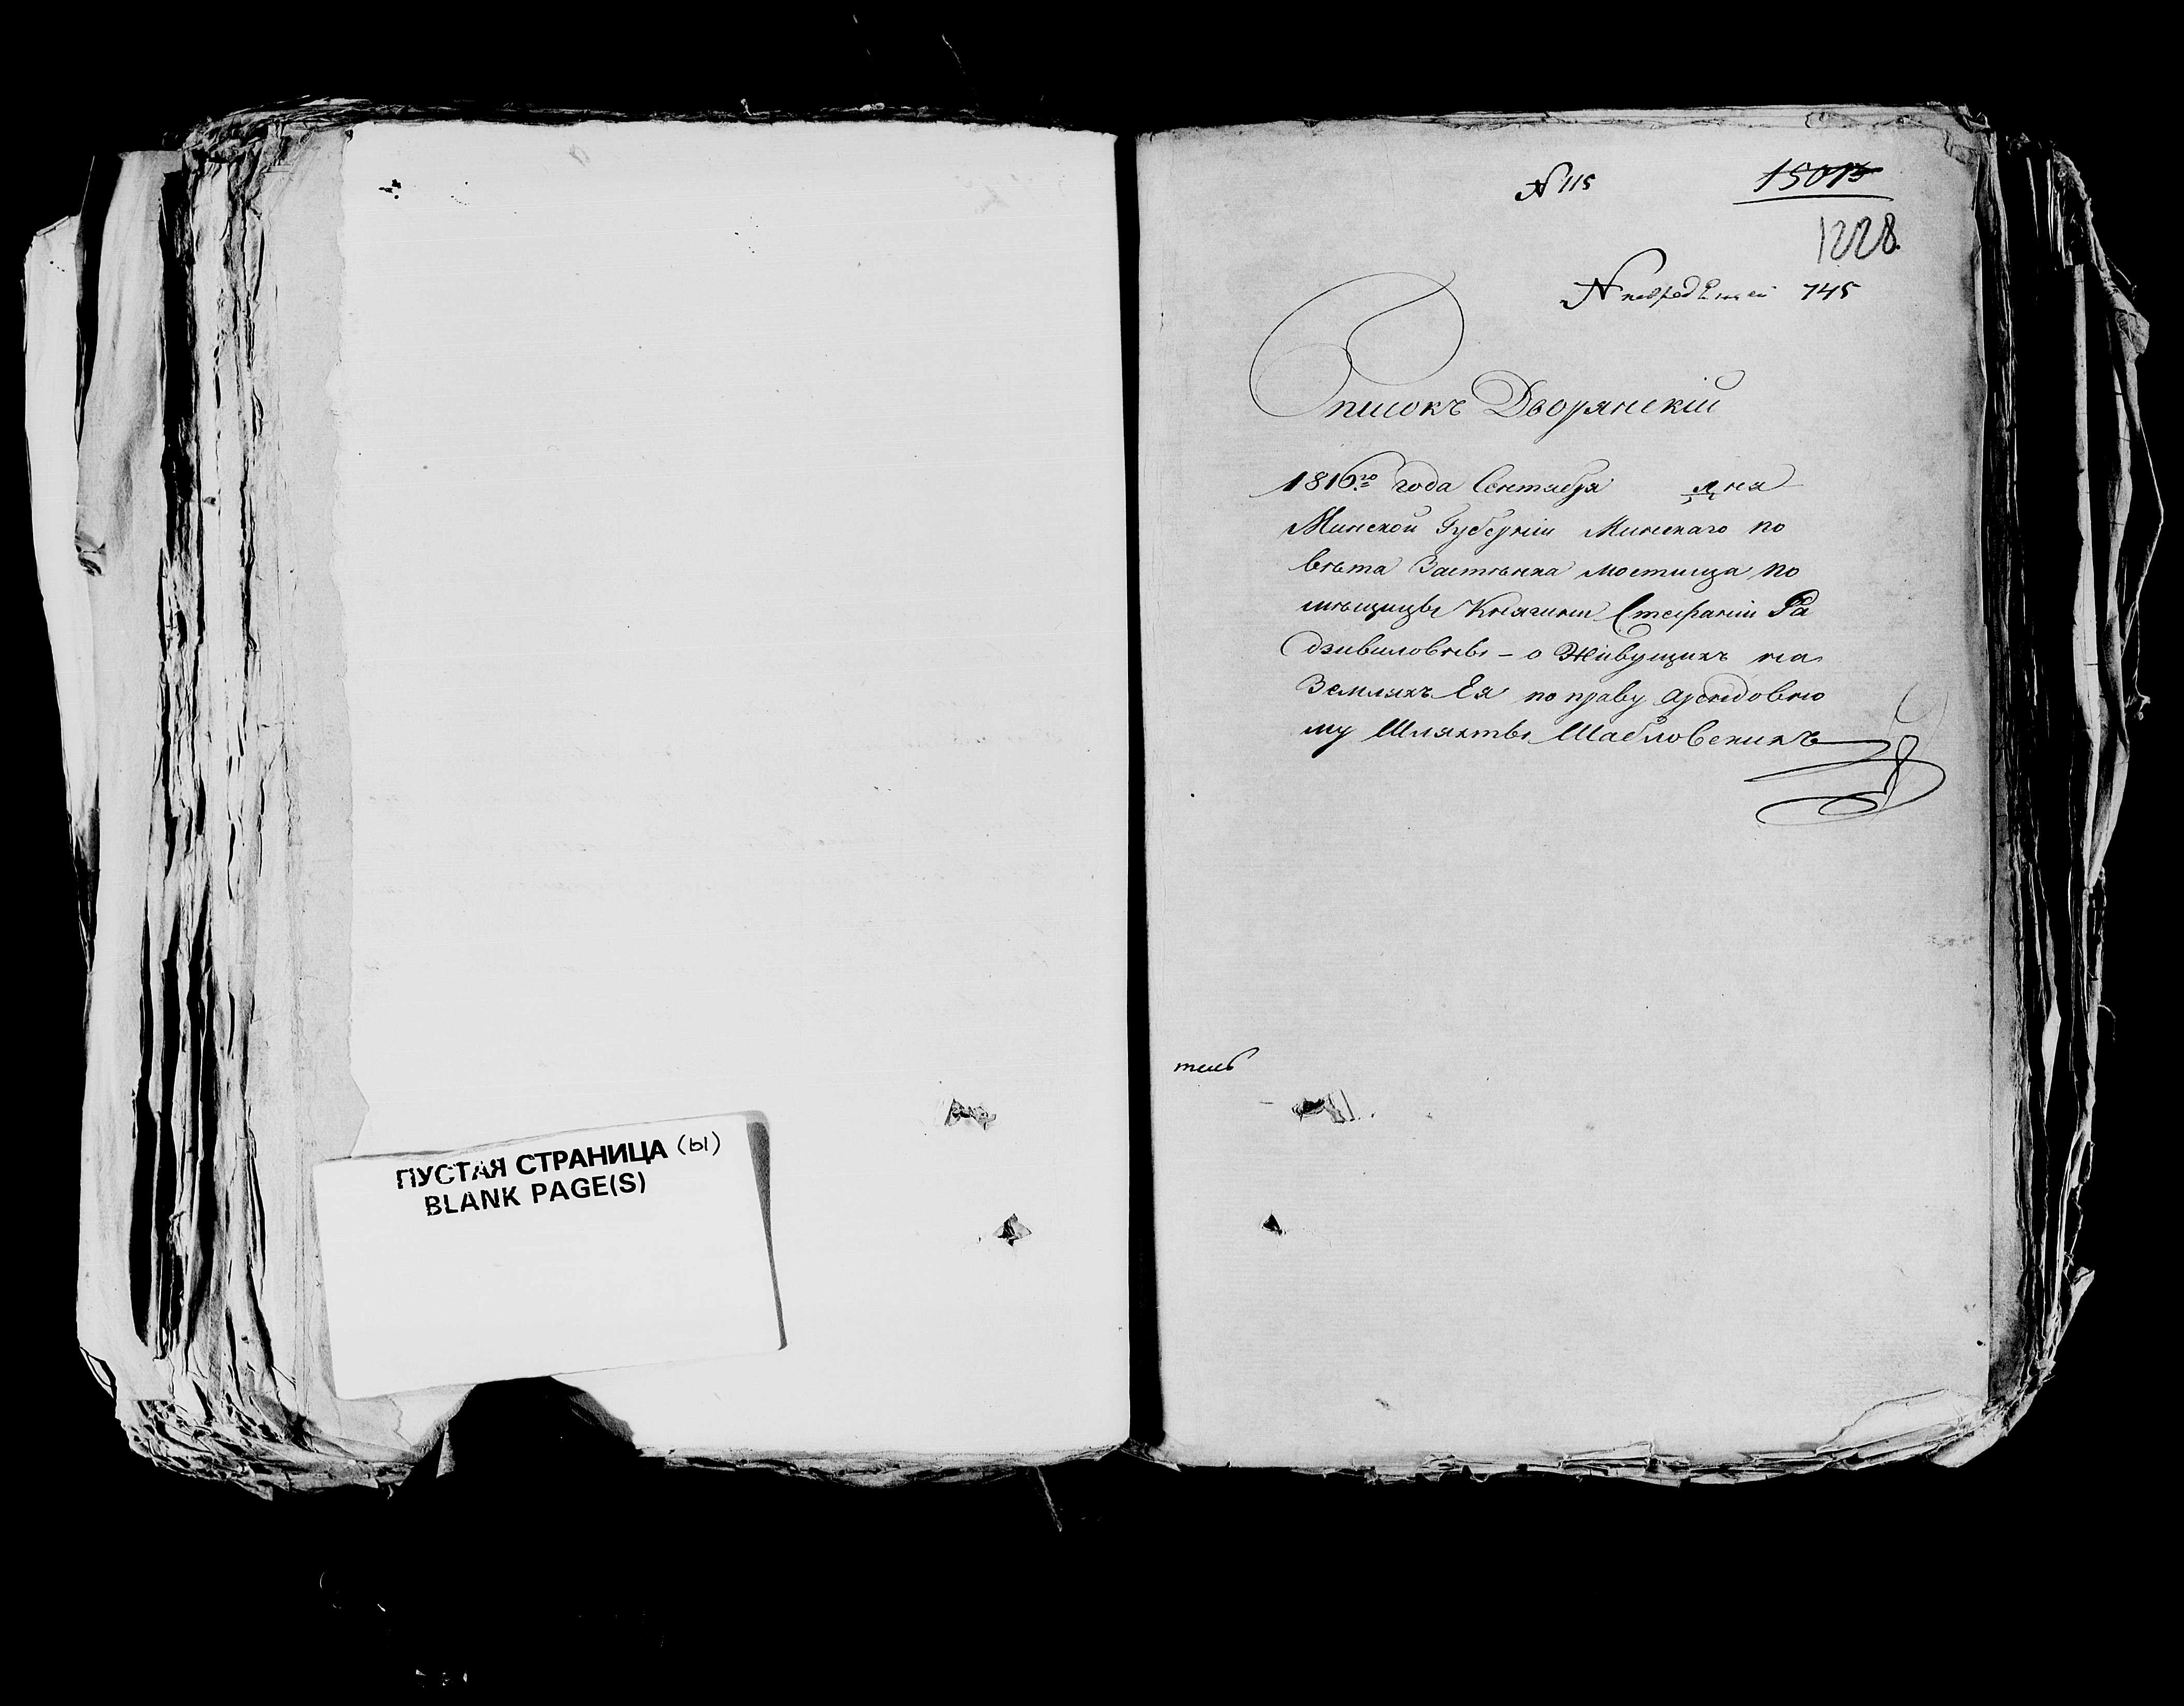 ПУСТАЯ СТРАНИЦА (ы)
BLANK PAGE(S)
N 115
1501
1228.
N 745
Списокъ Дворянскій
1816го года Сентября дня
Минской Губерніи Минскаго по
вѣта Застѣнка Мостища по
мѣщицы Княгини Стефаніи Ра
дзивиловны – о Живущихъ на
Земляхъ Ея по праву Арендовно
му Шляхты Шабловскихъ